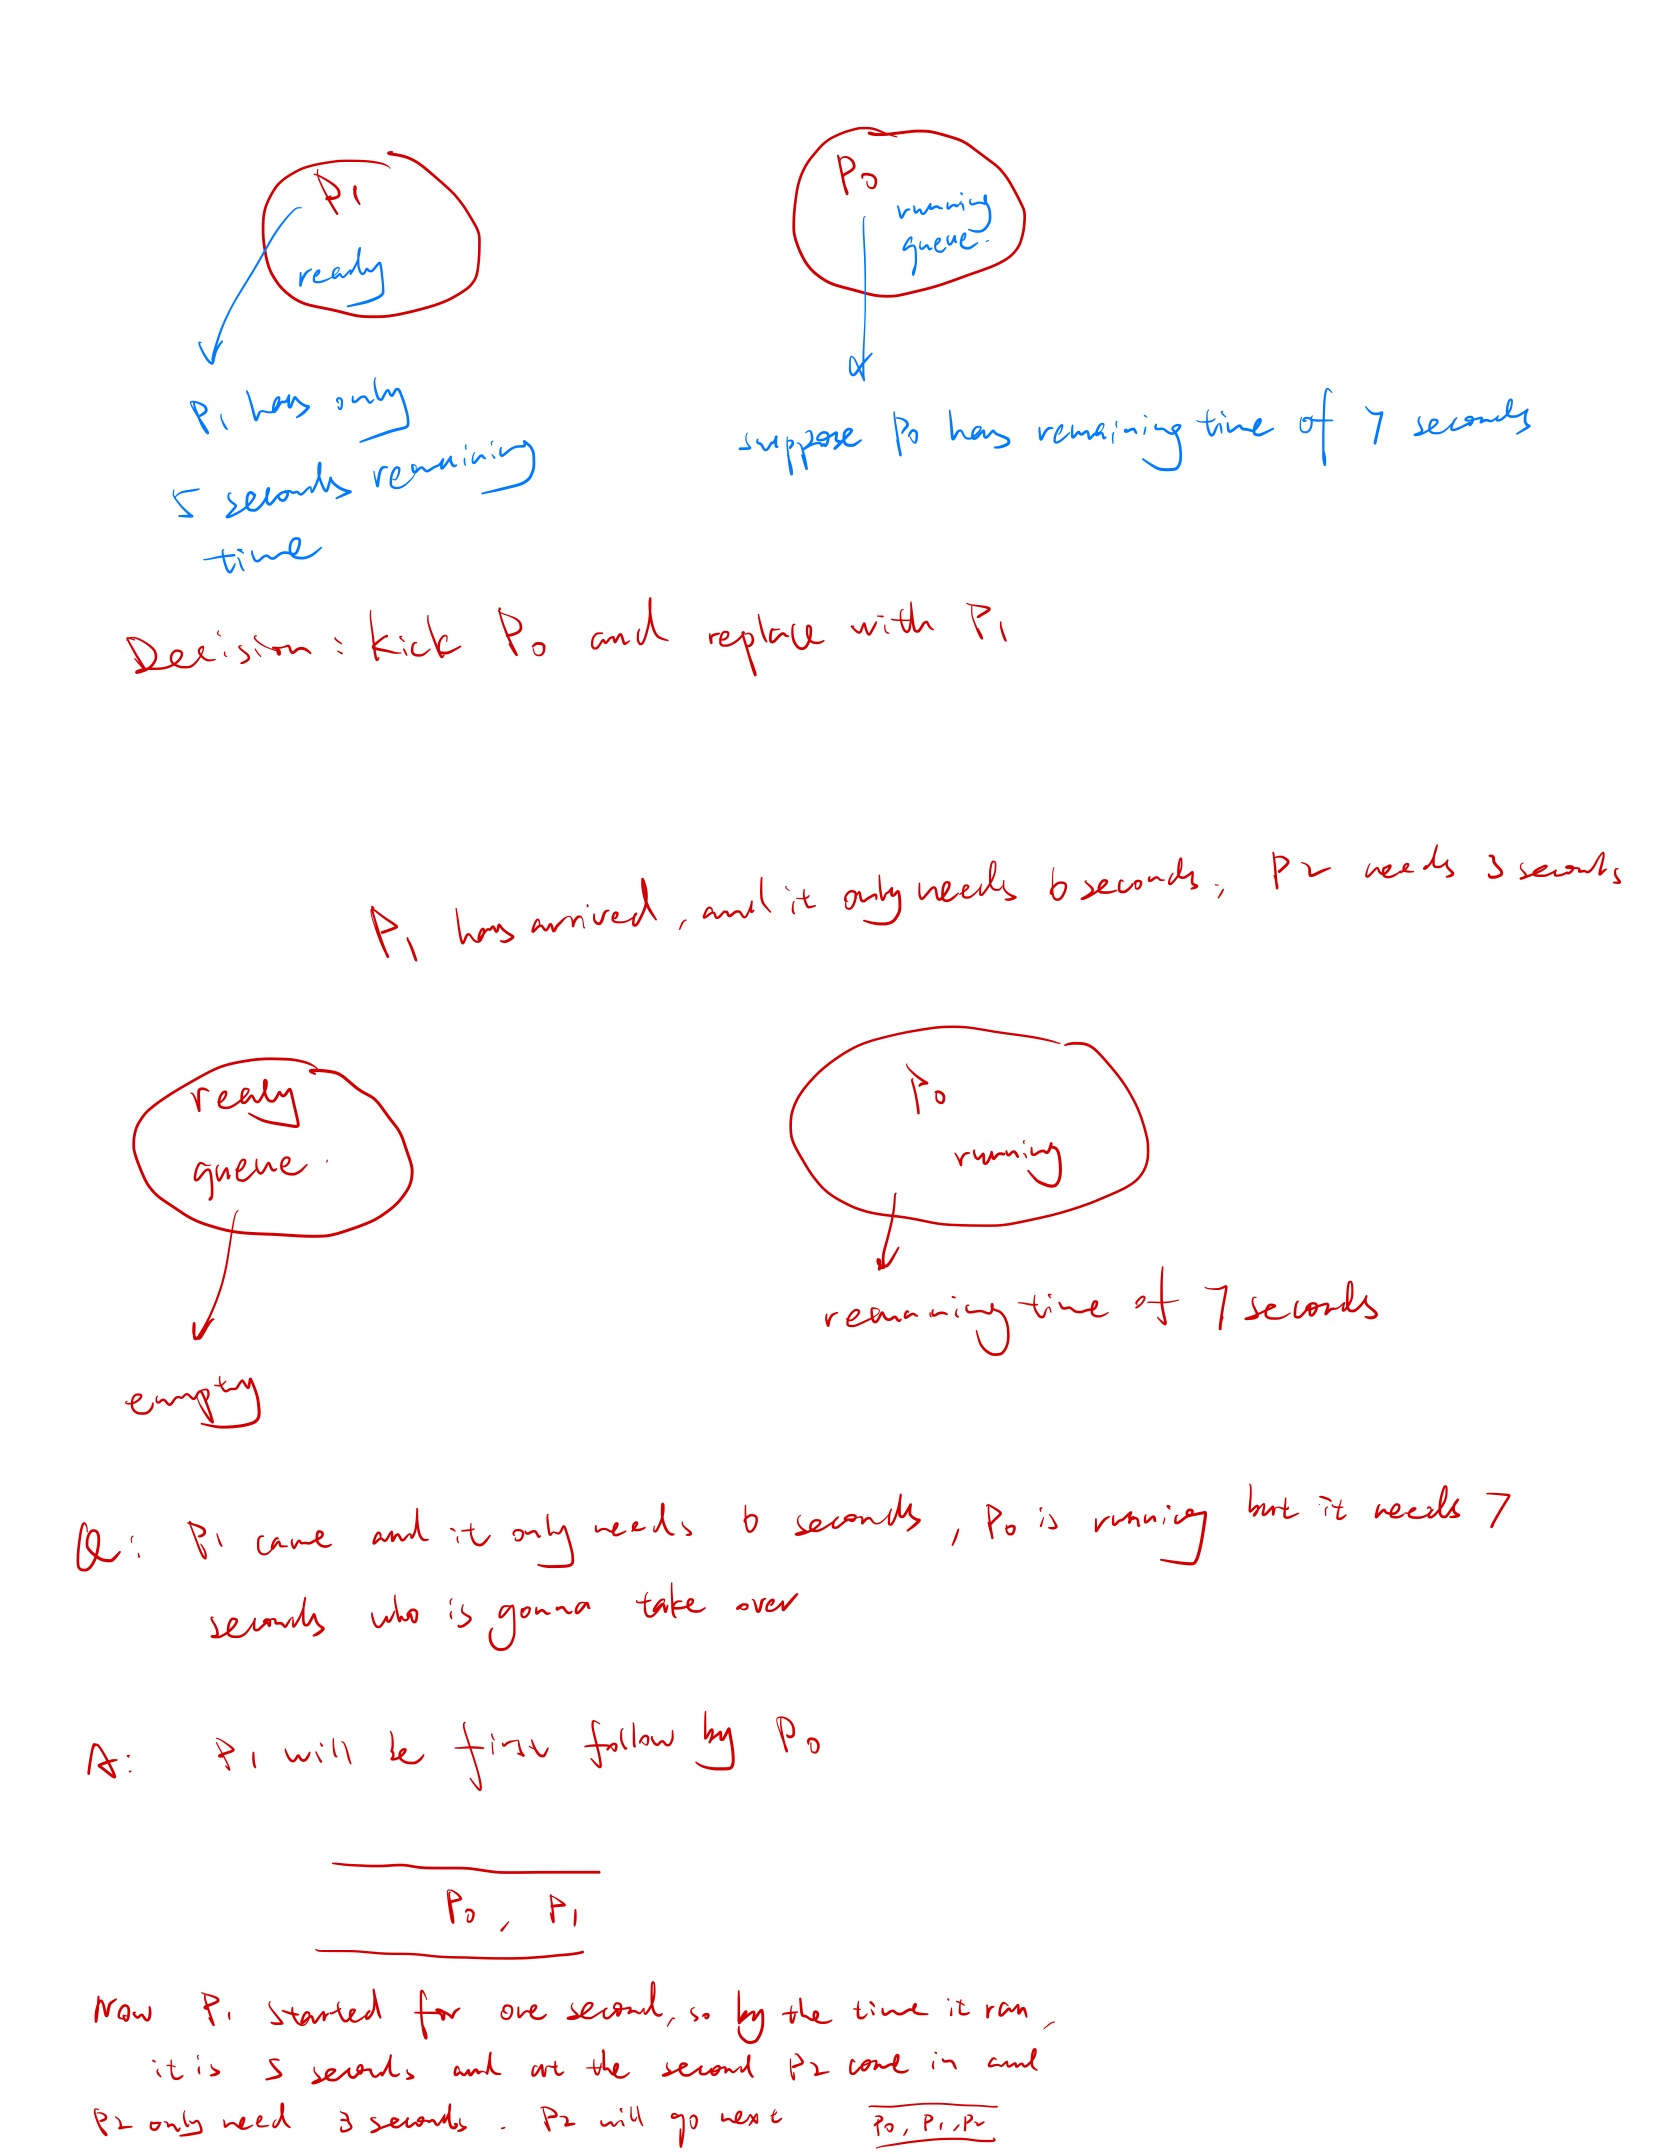 P1
ready
P0
running
queue.
P1 has only
5 seconds remaining
time
suppose P0 has remaining time of 7 seconds
Decision: kick P0 and replace with P1
P1 has arrived, and it only needs 6 seconds, P2 needs 3 seconds
ready
queue.
P0
running
empty
remaining time of 7 seconds
Q: P1 came and it only needs 6 seconds, P0 is running but it needs 7
seconds who is gonna take over
A: P1 will be first follow by P0
P0, P1
Now P1 started for one second, so by the time it ran,
it is 5 seconds and at the second P2 come in and
P2 only need 3 seconds. P2 will go next
P0, P1, P2